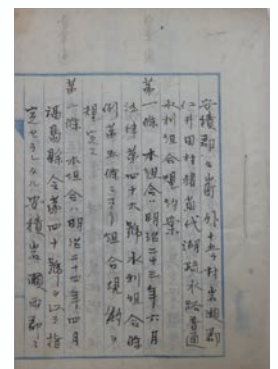 安積郡々山町外五ヶ村岩瀬郡
仁井田村猪苗代湖疏水路普通
水利組合規約案
第一條 本組合ハ明治二十三年六月
法律第四十六號水利組合條
例第五條ニヨリ組合規約ヲ
規定ス
第二條 本組合ハ明治二十四年四月
福島縣令第四十號ヲ以テ指
定セラレタル安積岩瀬両郡ニ